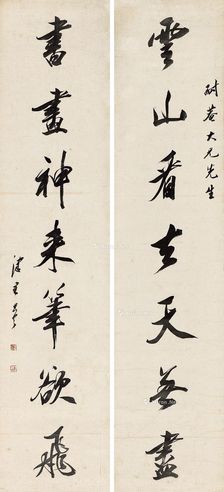 耐菴大兄先生
雲山看去天無盡
書畫神來筆欲飛